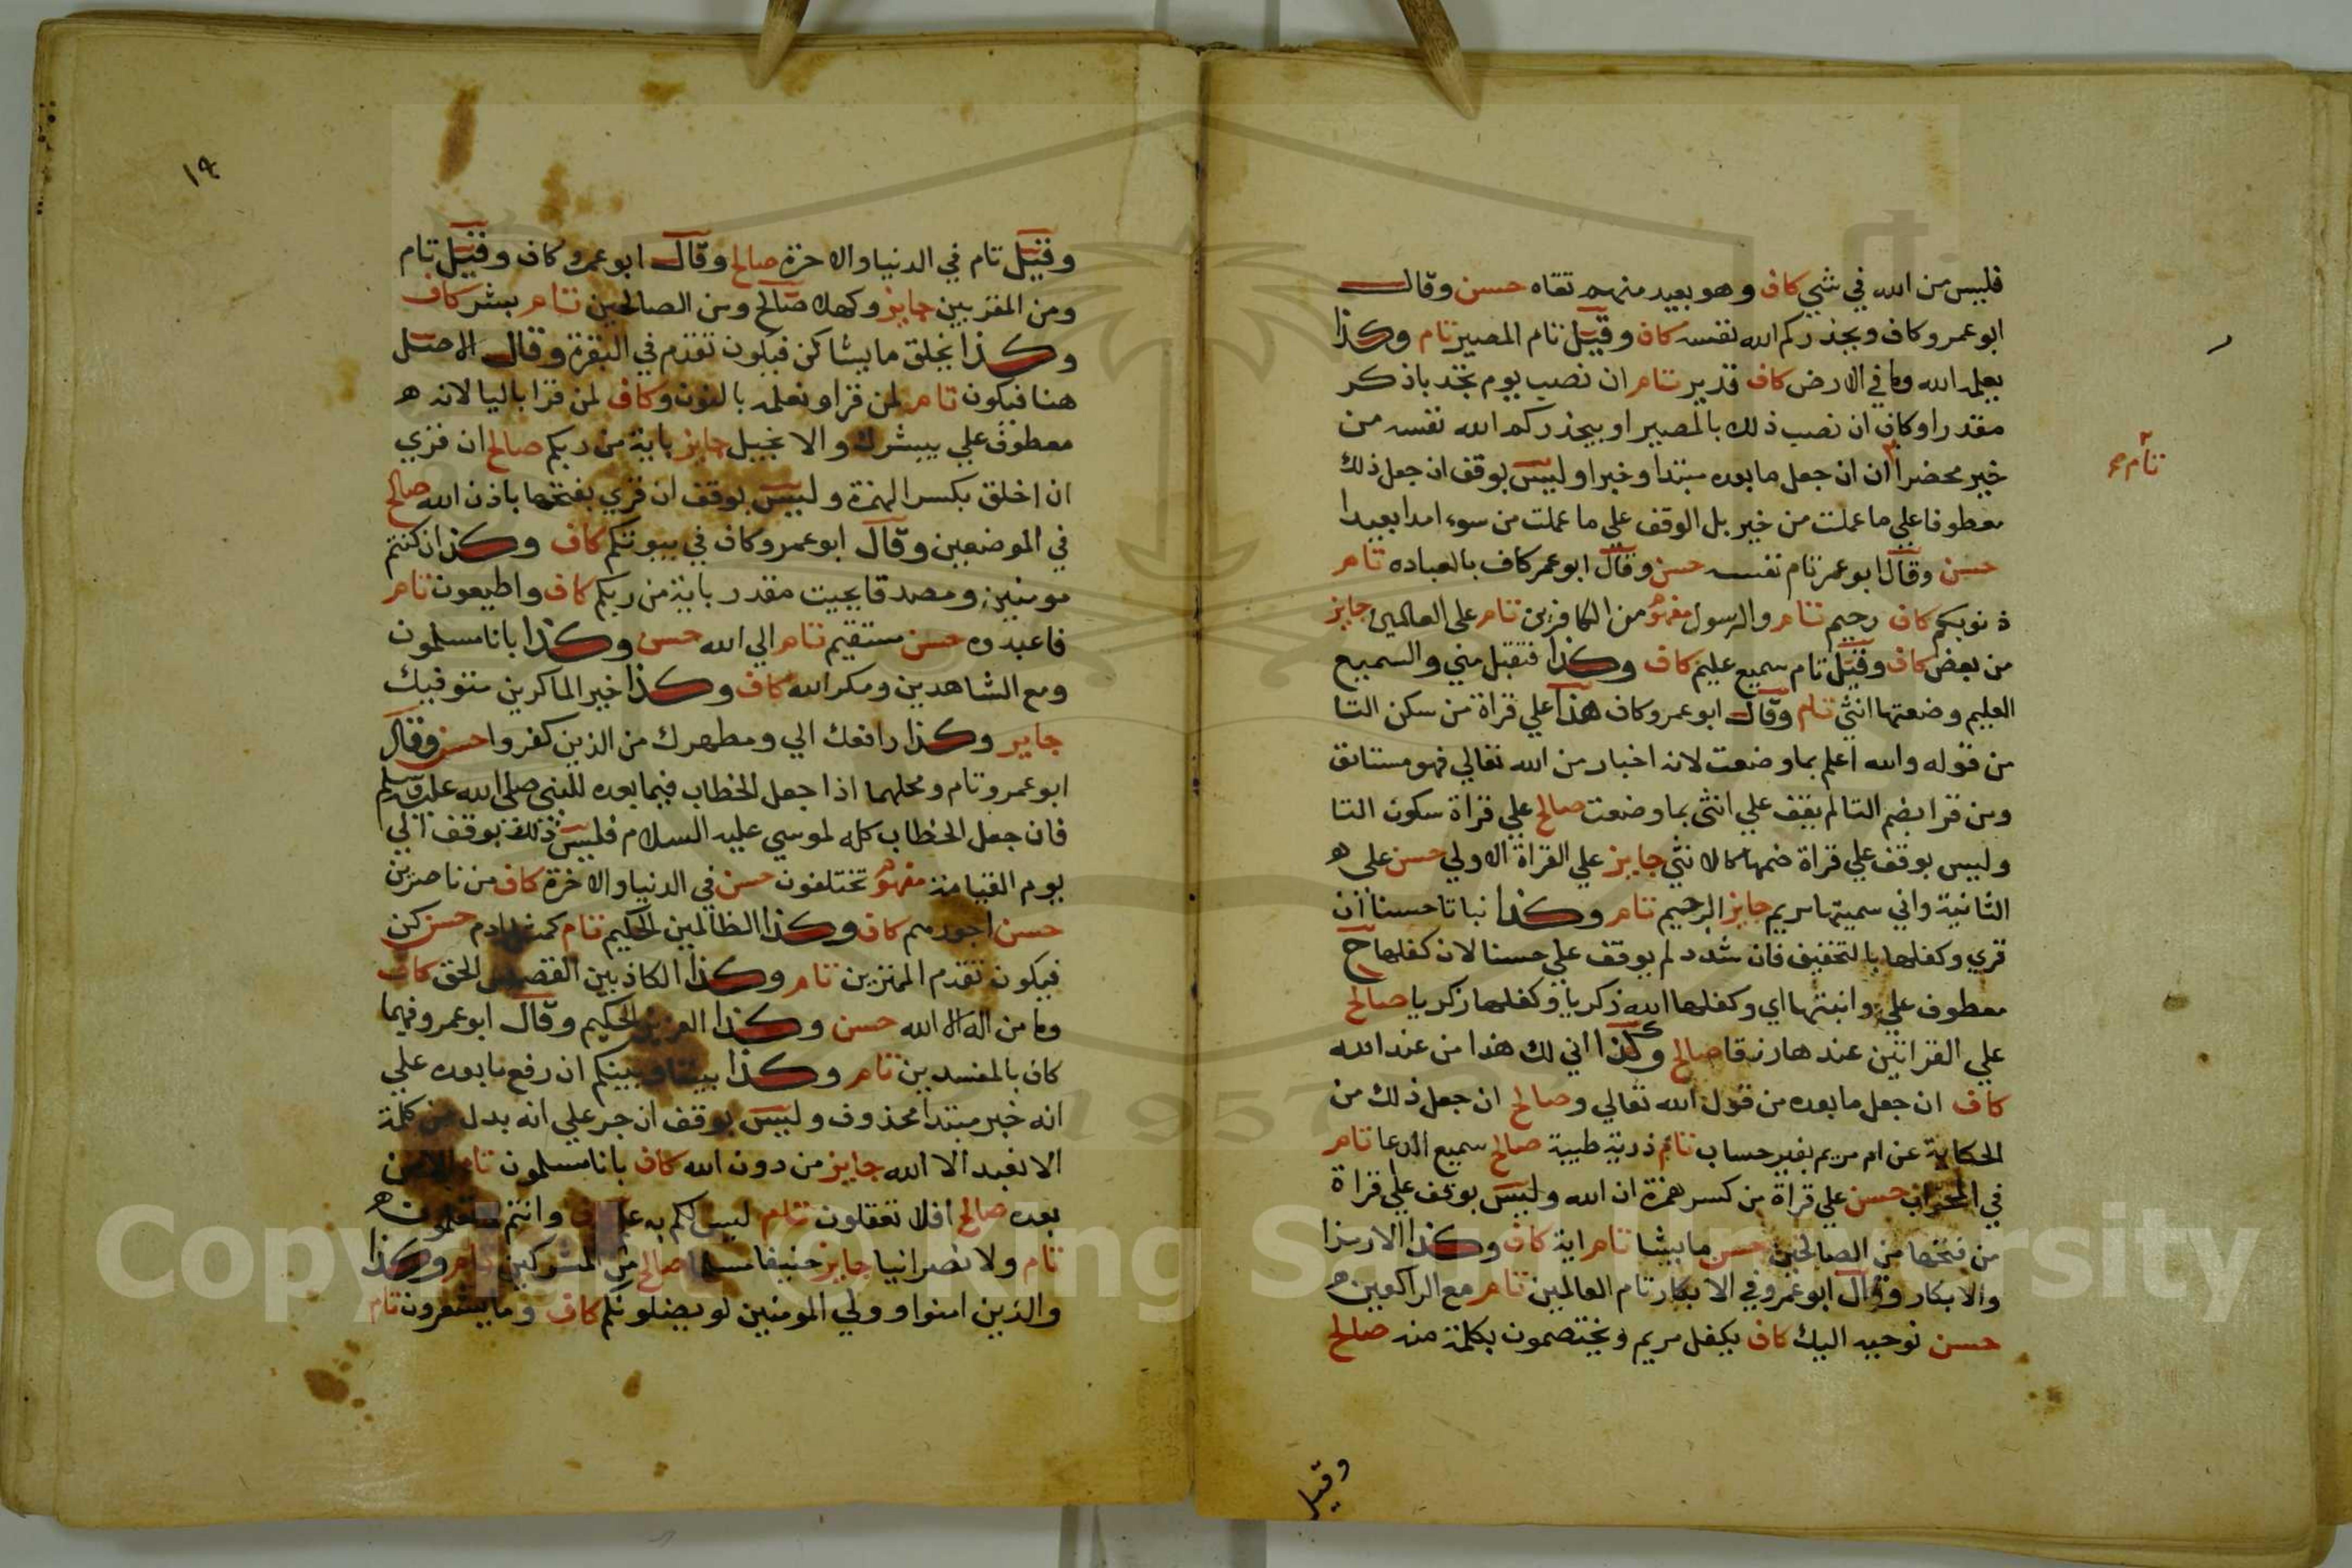 فليس من الله في شي كاف وهو بعيد منهم تقاه حسن وقال
ابو عمرو كاف ويحذركم الله نفسه كاف وقيل تام المصير تام وكذا
يعلمه الله وما في الارض كاف قدير تام ان نصب يوم تجد باذكر
مقدرا وكاف ان نصب ذلك بالمصير او بيحذركم الله نفسه من
خير محضرا ان ان جعل ما بعده مبتدا وخبرا وليس بوقف ان جعل ذلك
تام صح
معطوفا علي ما عملت من خير بل الوقف علي ما عملت من سوء امدا بعيدا
حسن وقال ابو عمر تام نفسه حسن وقال ابو عمر كاف بالعباده تام
ذنوبكم كاف رحيم تام والرسول مفهوم من الكافرين تام علي العالمين جايز
من بعض كاف وقيل تام سميع عليم كاف وكذا فتقبل مني والسميع
العليم وضعتها انثي تام وقال ابو عمرو كاف هذا علي قراة من سكن التا
من قوله والله اعلم بما وضعت لانه اخبار من الله تعالي فهو مستانف
ومن قرا بضم التا لم يقف علي انثى بما وضعت صالح علي قراة سكون التا
وليس بوقف علي قراة ضمها كالانثي جايز علي القراة الاولي حسن علي ه
الثانية واني سميتها مريم جايز الرجيم تام وكذا نباتا حسنا ان
قري وكفلها بالتخفيف فان شدد لم يوقف علي حسنا لان كفلها ح
معطوف علي وانبتها اي وكفلها الله زكريا وكفلها زكريا صالح
علي القراتين عندها رزقا صالح وكذا اني لك هذا من عند الله
كاف ان جعل ما بعده من قول الله تعالي وصالح ان جعل ذلك من
الحكاية عن ام مريم بغير حساب تام ذرية طيبة صالح سميع الدعا تام
في المحراب حسن علي قراة من كسر همزة ان الله وليس بوقف علي قراة
من فتحها من الصالحين حسن ما يشا تام اية كاف وكذا الا رمزا
والابكار وقال ابو عمرو في الابكار تام العالمين تام مع الراكعين ه
حسن نوحيه اليك كاف يكفل مريم ويختصمون بكلمة منه صالح
وقيل
١٩
وقيل تام في الدنيا والاخرة صالح وقال ابو عمرو كاف وقيل تام
ومن المقربين جايز وكهلا صالح ومن الصالحين تام بشر كاف
وكذا يخلق ما يشا كن فيكون تقدم في البقرة وقال الاصل
هنا فيكون تام لمن قرا ونعلمه بالنون وكاف لمن قرا باليا لانه ه
معطوف علي يبشرك والانجيل جايز باية من ربكم صالح ان قري
ان اخلق بكسر الهمزة وليس بوقف ان قري بفتحها باذن الله صالح
في الموضعين وقال ابو عمرو كاف في بيوتكم كاف وكذا ان كنتم
مومنين ومصدقا بجيت مقدر باية من ربكم كاف واطيعون تام
فاعبدوه حسن مستقيم تام الي الله حسن وكذا بانا مسلمون
ومع الشاهدين ومكر الله كاف وكذا خير الماكرين متوفيك
جايز وكذا رافعك الي ومطهرك من الذين كفروا حسن وقال
ابو عمرو تام ومحلهما اذا جعل الخطاب فيما بعده للنبي صلي الله عليه وسلم
فان جعل الخطاب كله لموسي عليه السلام فليس ذلك بوقف الي
يوم القيامة مفهوم تختلفون حسن في الدنيا والاخرة كاف من ناصرين
حسن اجورهم كاف وكذا الظالمين الحكيم تام كمثل ادم حسن كن
فيكون تقدم الممترين تام وكذا الكاذبين القصص الحق كاف
وما من اله الا الله حسن وكذا العزيز الحكيم وقال ابو عمرو فيهما
كاف بالمفسدين تام وكذا بيننا وبينكم ان رفع ما بعده علي
انه خبر مبتدا محذوف وليس بوقف ان جر علي انه بدل من كلمة
الا نعبد الا الله جايز من دون الله كاف بانا مسلمون تام الا من
بعده صالح افلا تعقلون تام ليس لكم به علم كاف وانتم لا تعلمون ه
تام ولا نصرانيا جايز حنيفا مسلما صالح من المشركين تام وكذا
والذين امنوا وولي المومنين لو يضلونكم كاف وما يشعرون تام
Copyright © King Saud University
1957